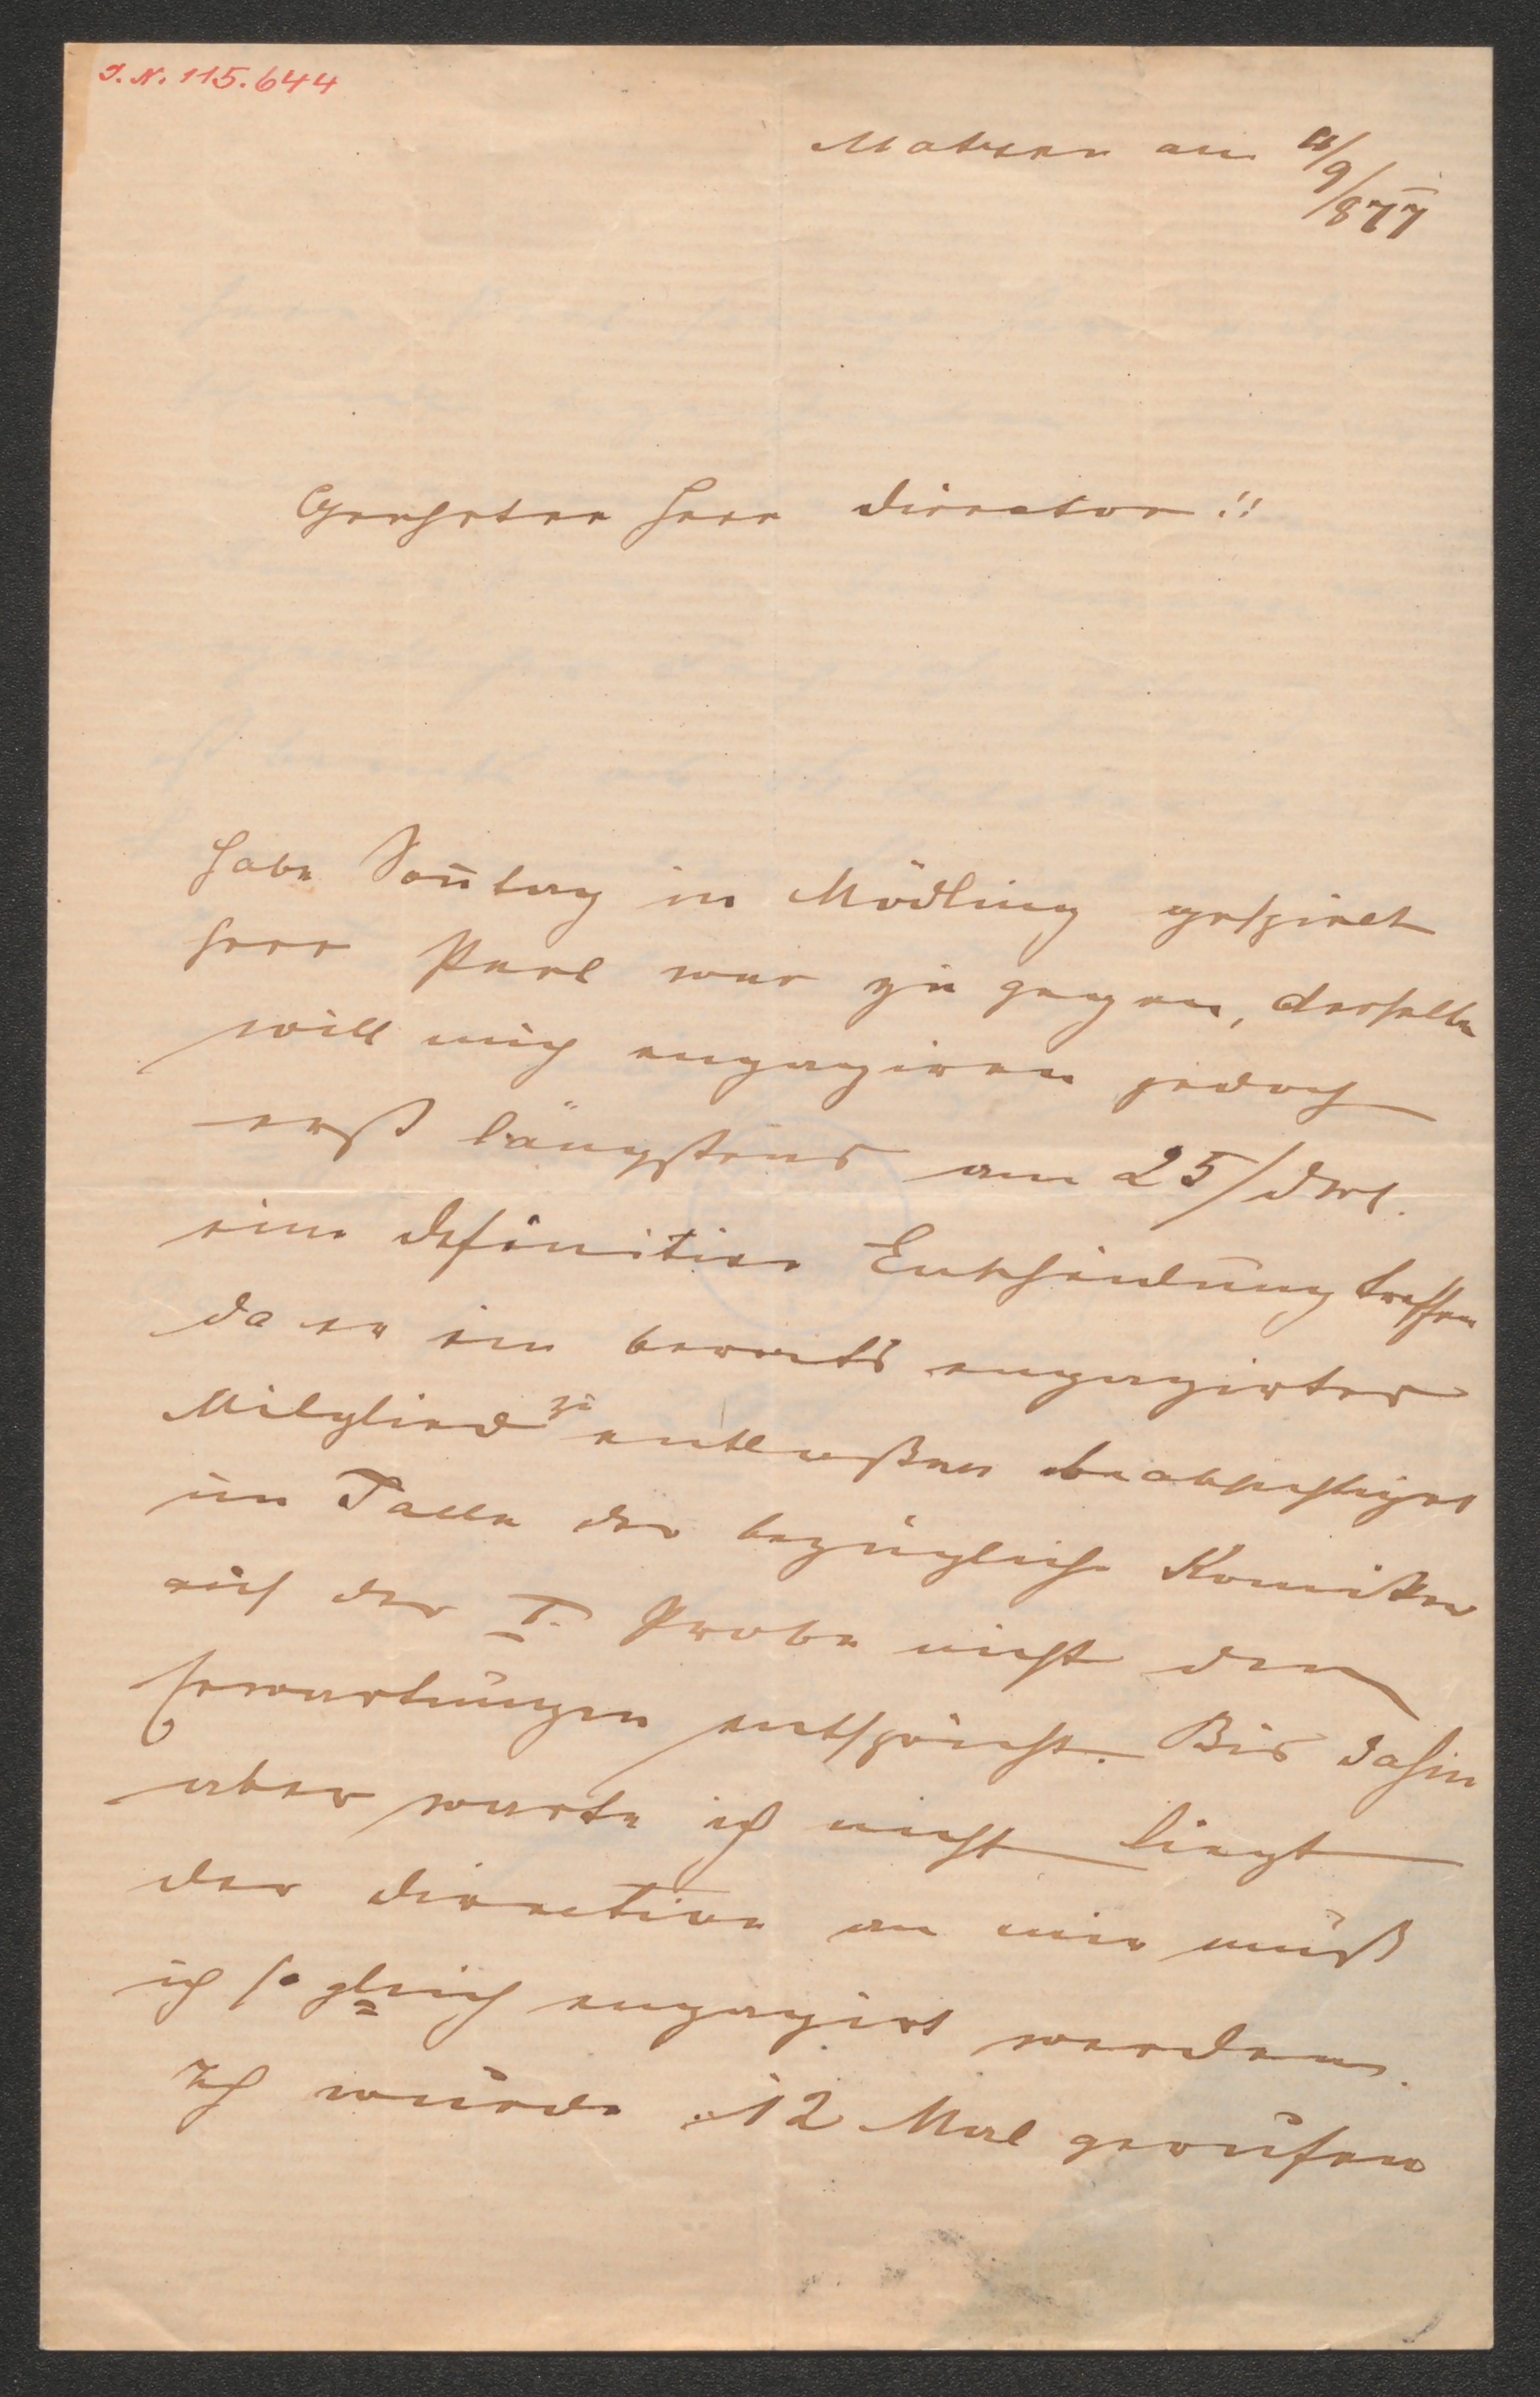 I. N. 115.644
Matzen am 4/9/877
Geehrter Herr Director!!
Habe Soñtag in Mödling gespielt
Herr Perl war zu gegen, derselbe
will mich engagiren jedoch
erst längstens am 25/dM.
eine definitive Entscheidung treffen
da er ein bereits engagirtes
Mitglied zu entlaßen beabsichtiget
im Falle der bezügliche Komiker
auf der I. Probe nicht den
Erwartungen entspricht. Bis dahin
aber warte ich nicht liegt
der Direction an mir muß
ich so gleich engagirt werden.
Ich wurde 12 Mal gerufen